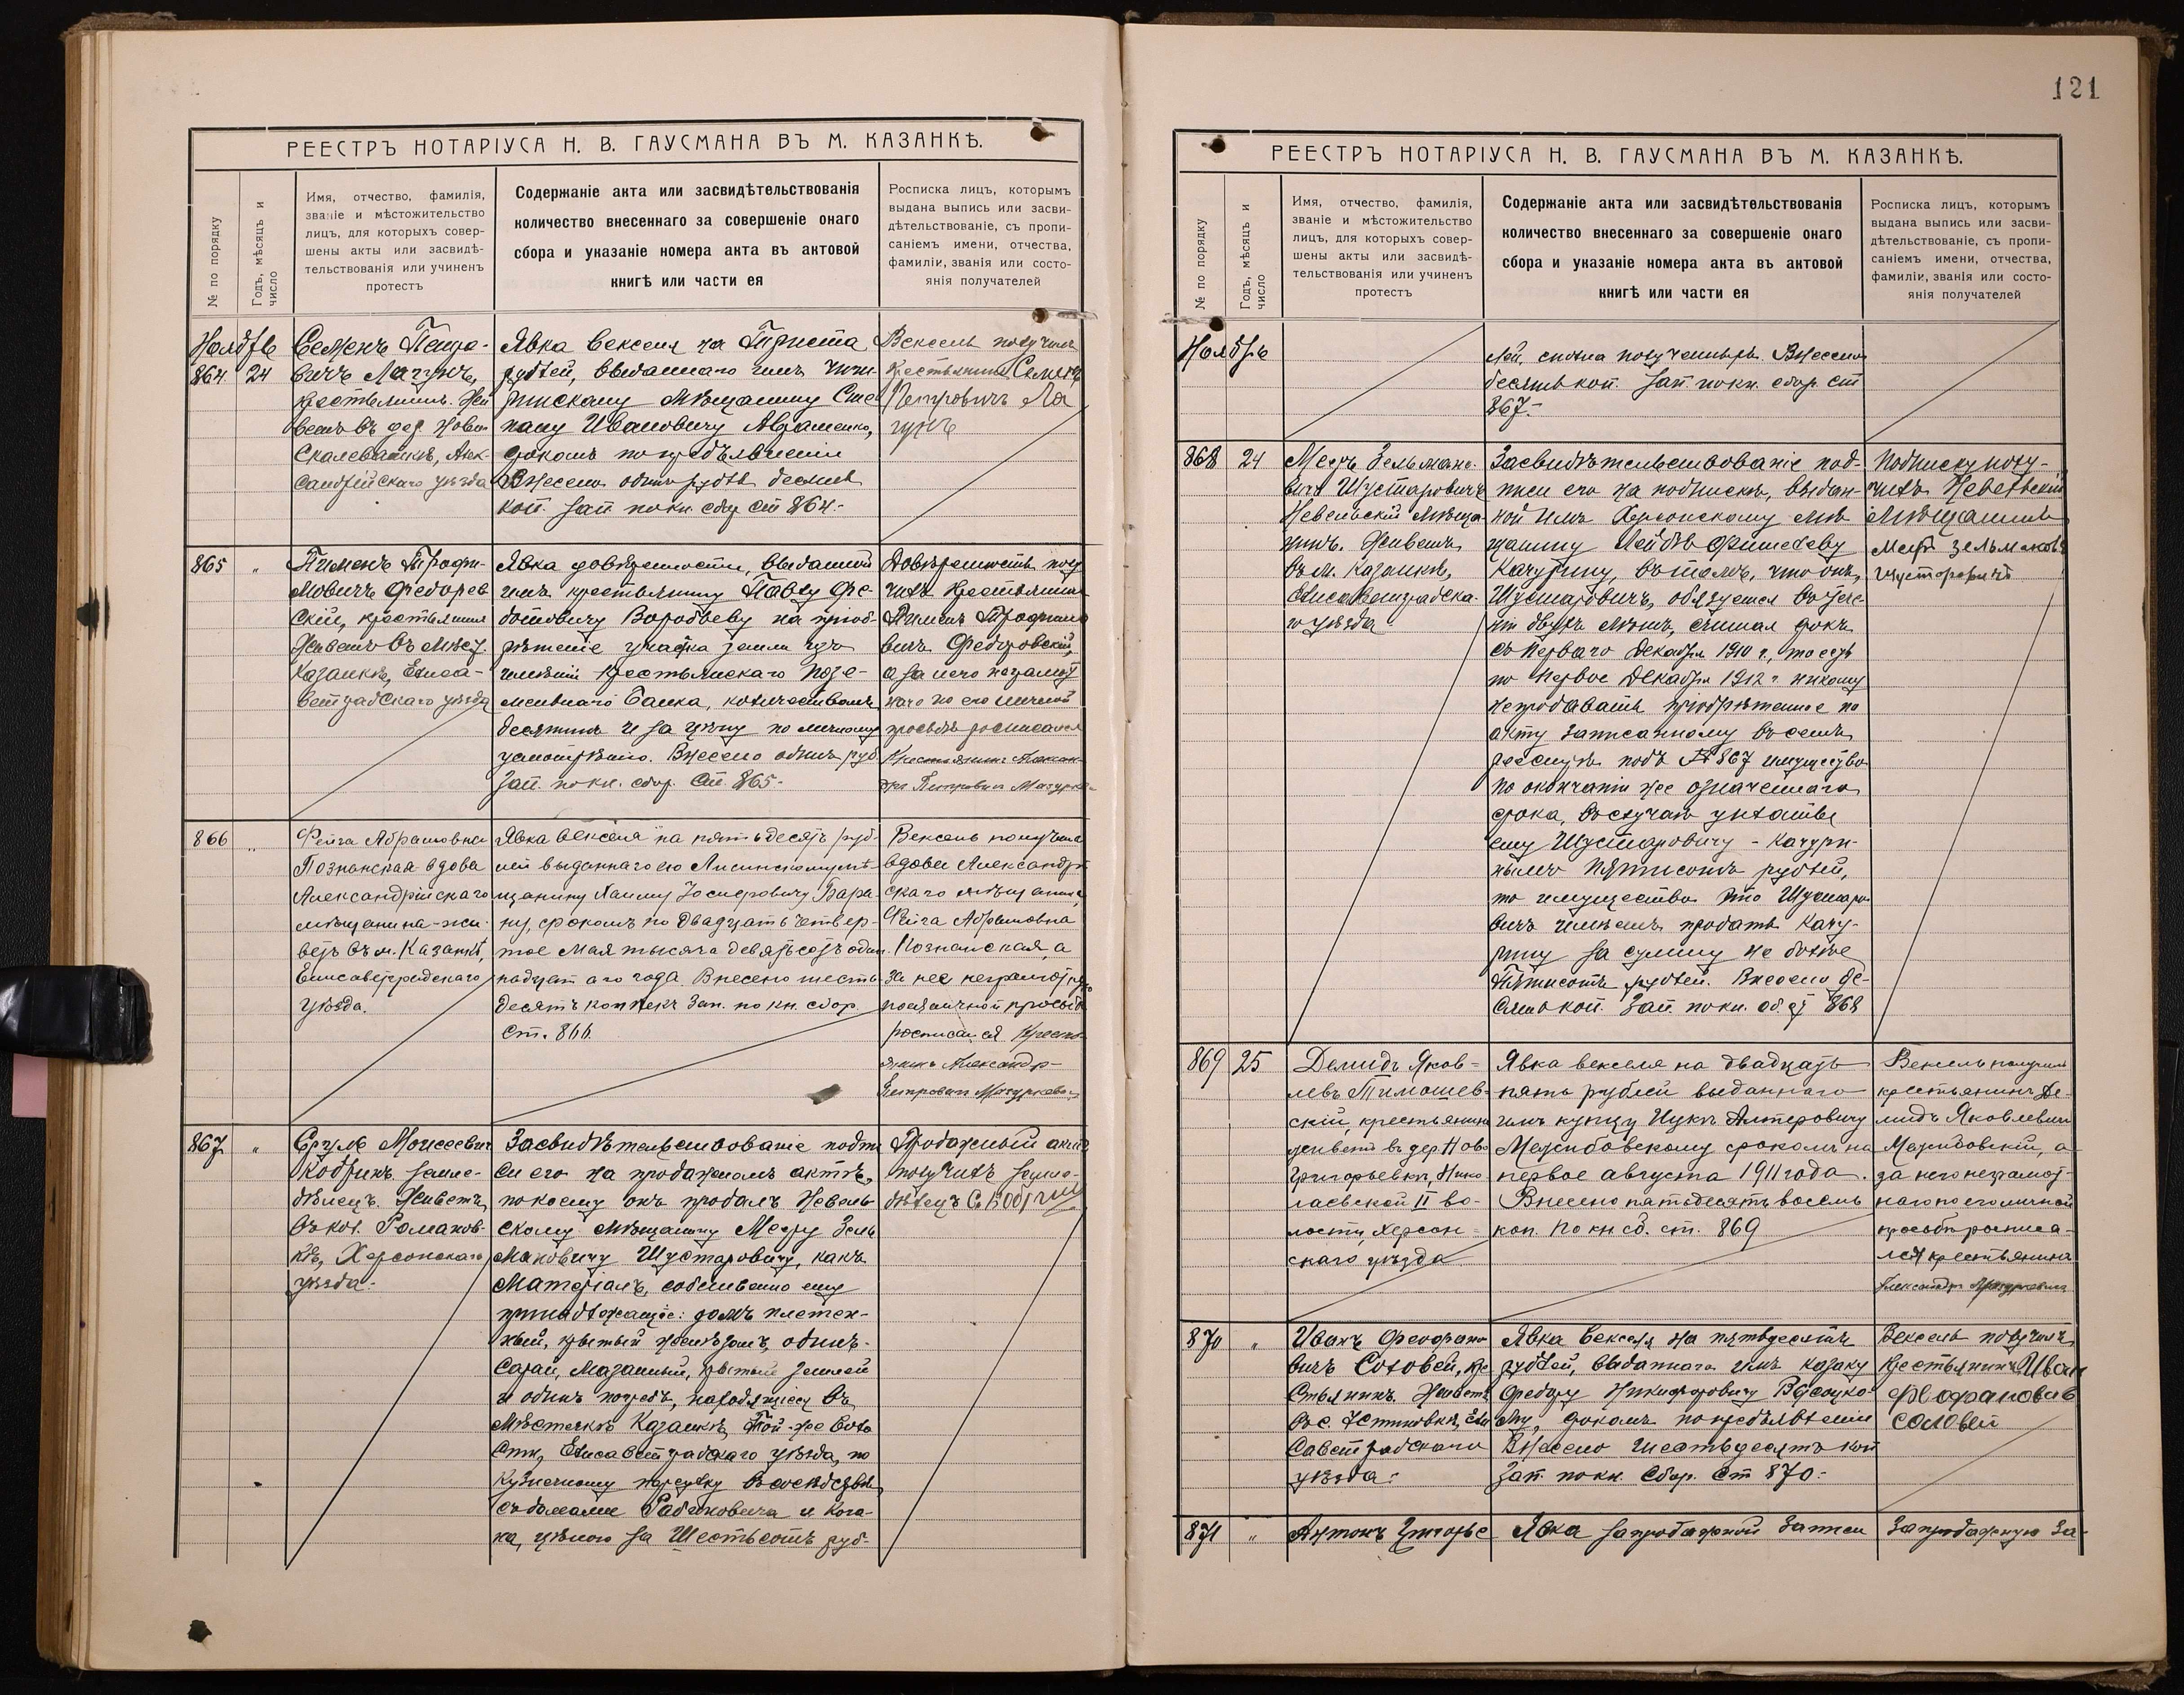 РЕЕСТРЪ НОТАРІУСА Н. В. ГАУСМАНА ВЪ М. КАЗАНКѢ.
№ по порядку
Годъ, мѣсяцъ и число
Имя, отчество, фамилія,
званіе и мѣстожительство
лицъ, для которыхъ совер-
шены акты или засвидѣ-
тельствованія или учиненъ
протестъ
Содержаніе акта или засвидѣтельствованія
количество внесеннаго за совершеніе онаго
сбора и указаніе номера акта въ актовой
книгѣ или части ея
Росписка лицъ, которымъ
выдана выпись или засви-
дѣтельствованіе, съ пропи-
саніемъ имени, отчества,
фамиліи, званія или состо-
янія получателей
Ноябрь
864 24
Семенъ Петро-
вичъ Лагунъ,
крестьянинъ. Жи
ветъ въ дер. Ново
Скалеватке, Алек-
сандрійскаго уѣзда
Явка векселя на Триста
рублей, выданнаго имъ Чиги-
ринскому мѣщанину Сте
пану Ивановичу Авраменко,
срокомъ по предъявленіи
Внесено одинъ рубль десять
коп. Зап. по кн. сбор. Ст 864.-
Вексель получилъ
крестьянинъ Семенъ
Петровичъ Ла
гунъ
865 "
Пименъ Трофи-
мовичъ Федоров
скій, крестьянинъ
Живетъ въ мѣст.
Казанкѣ, Елиса-
ветградскаго уѣзда
Явка довѣренности, выданной
имъ крестьянину Павлу Фе-
дотовичу Воробьеву на пріоб-
рѣтеніе участка земли изъ
имѣній Крестьянскаго Позе-
мельнаго Банка, количествомъ
десятинъ и за цѣну по личному
усмотрѣнію. Внесено одинъ руб
Зап. по кн. сбор. Ст. 865-
Довѣренность полу
чилъ Крестьянинъ
Пименъ Трофимо
вичъ Федоровскій,
а за него неграмот
наго по его личной
просьбѣ росписался
Крестьянинъ Алексан
дръ Петровичъ Мазурке-
866 "
Фейга Абрамовна
Познанская вдова
Александрійскаго
мѣщанина-жи-
ветъ въ м. Казанкѣ,
Елисаветградскаго
уѣзда.
Явка векселя на пятьдесятъ руб-
лей выданнаго ею Лисинскому мѣ-
щанину Хаиму Іосиеровичу Бара
ну, срокомъ по двадцать четвер-
тое мая тысяча девятьсотъ один
надцатаго года. Внесено шесть
десятъ копѣекъ Зап. по кн. сбор.
Ст. 866.
Вексель получила
вдова Александрій
скаго мѣщанина,
Фейга Абрамовна
Познанская, а
за нее неграмотную
по ея личной просьбѣ
росписался Кресть
янинъ Александр-
Петровичъ Мазуркевичъ
867 "
Сруль Моисеевичъ
Кобринъ, земле-
дѣлецъ. Живетъ
въ кол. Романов-
кѣ, Херсонскаго
уѣзда.
Засвидѣтельствованіе подпи
си его на продажномъ актѣ,
по коему онъ продалъ Невель-
скому мѣщанину Мееру Зель
мановичу Шустаровичу, какъ
матеріалъ, собственно ему
принадлежащіе: домъ плетен-
ный, крытый желѣзомъ, одинъ-
сарай, мазанный, крытый землей
и одинъ погребъ, находящіеся въ
мѣстечкѣ Казанкѣ, той-же воло
сти, Елисаветградскаго уѣзда, по
Кузнечному переулку въ сосѣдствѣ
съ домами Рабиновича и Кога-
на, цѣною за Шестьсотъ руб-
Продажный актъ
получилъ земле-
дѣлецъ С. Кобринъ
121
РЕЕСТРЪ НОТАРІУСА Н. В. ГАУСМАНА ВЪ М. КАЗАНКѢ.
№ по порядку
Годъ, мѣсяцъ и число
Имя, отчество, фамилія,
званіе и мѣстожительство
лицъ, для которыхъ совер-
шены акты или засвидѣ-
тельствованія или учиненъ
протестъ
Содержаніе акта или засвидѣтельствованія
количество внесеннаго за совершеніе онаго
сбора и указаніе номера акта въ актовой
книгѣ или части ея
Росписка лицъ, которымъ
выдана выпись или засви-
дѣтельствованіе, съ пропи-
саніемъ имени, отчества,
фамиліи, званія или состо-
янія получателей
Ноябрь
лей, сполна полученныхъ. Внесено
десять коп. Зап. по кн. сбор. Ст
867.-
868 24
Меерь Зельмано-
вичъ Шустаровичъ
Невельскій мѣща
нинъ. Живетъ
въ м. Казанкѣ,
Елисаветградска-
го уѣзда
Засвидѣтельствованіе под-
писи его на подпискѣ, выдан-
ной имъ Херсонскому мѣ
щанину Лейбѣ Фишелеву
Качурину, въ томъ, что онъ,
Шустаровичъ, обязуется въ тече-
ніи двухъ лѣтъ, считая срокъ
съ перваго Декабря 1910 г., то есть
по первое Декабря 1912 г никому
не продавать пріобрѣтенное по
акту записанному въ семъ
реестрѣ подъ № 867 имущество
по окончаніи же означеннаго
срока, въ случаѣ уплаты
ему Шустаровичу - Качури-
нымъ пятисотъ рублей,
то имущество это Шустаро
вичъ имѣетъ продать Качу-
рину за сумму не болѣе
Пятисотъ рублей. Внесено де-
сять коп. Зап. по кн. сб. ст 868
Подписку полу-
чилъ Невельскій
мѣщанинъ
Меер Зельмановъ
Шустаровичъ
869 25
Демидъ Яков-
левъ Тимошев-
скій, крестьянинъ
живетъ въ дер. Ново
Григорьевкѣ, Нико
лаевской II во-
лости, Херсон-
скаго уѣзда
Явка векселя на двадцать
пять рублей выданнаго
имъ купцу Ицкѣ Алтеровичу
Межибовскому срокомъ на
первое августа 1911 года.
Внесено пятьдесятъ восемь
коп. По кн сб. ст. 869
Вексель получилъ
крестьянинъ Де-
мидъ Яковлевичъ
Межибовскій, а
за него неграмот-
наго по его личной
просьбѣ росписа-
лся крестьянинъ
Александръ Мазуркевичъ
870 "
Иванъ Феофано
вичъ Соловей, кре
стьянинъ. Живетъ
въ с. Устиновкѣ, Ели
саветградскаго
уѣзда.-
Явка векселя на пятьдесятъ
рублей, выданнаго имъ казаку
Федору Никифоровичу Высоцко-
му, срокомъ по предъявленіи
Внесено шестьдесятъ коп
Зап. по кн. Сбор. Ст 870.-
Вексель получилъ
Крестьянинъ Иван
Феофановив
Соловей
871 "
Антонъ Григорье
Явка запродажной записи
Запродажную за-